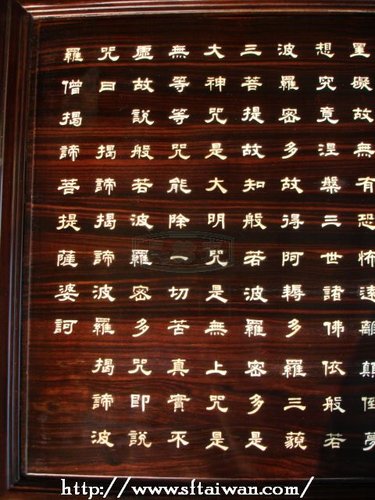 罣礙故無有恐怖遠離顛倒夢
想究竟涅槃三世諸佛依般若
波羅密多故得阿耨多羅三藐
三菩提故知般若波羅密多是
大神咒是大明咒是無上咒是
無等等咒能除一切苦真實不
虛故說般若波羅密多咒即說
咒曰 揭諦揭諦波羅 揭諦波
羅僧揭諦菩提薩婆訶
http://www.sftaiwan.com/